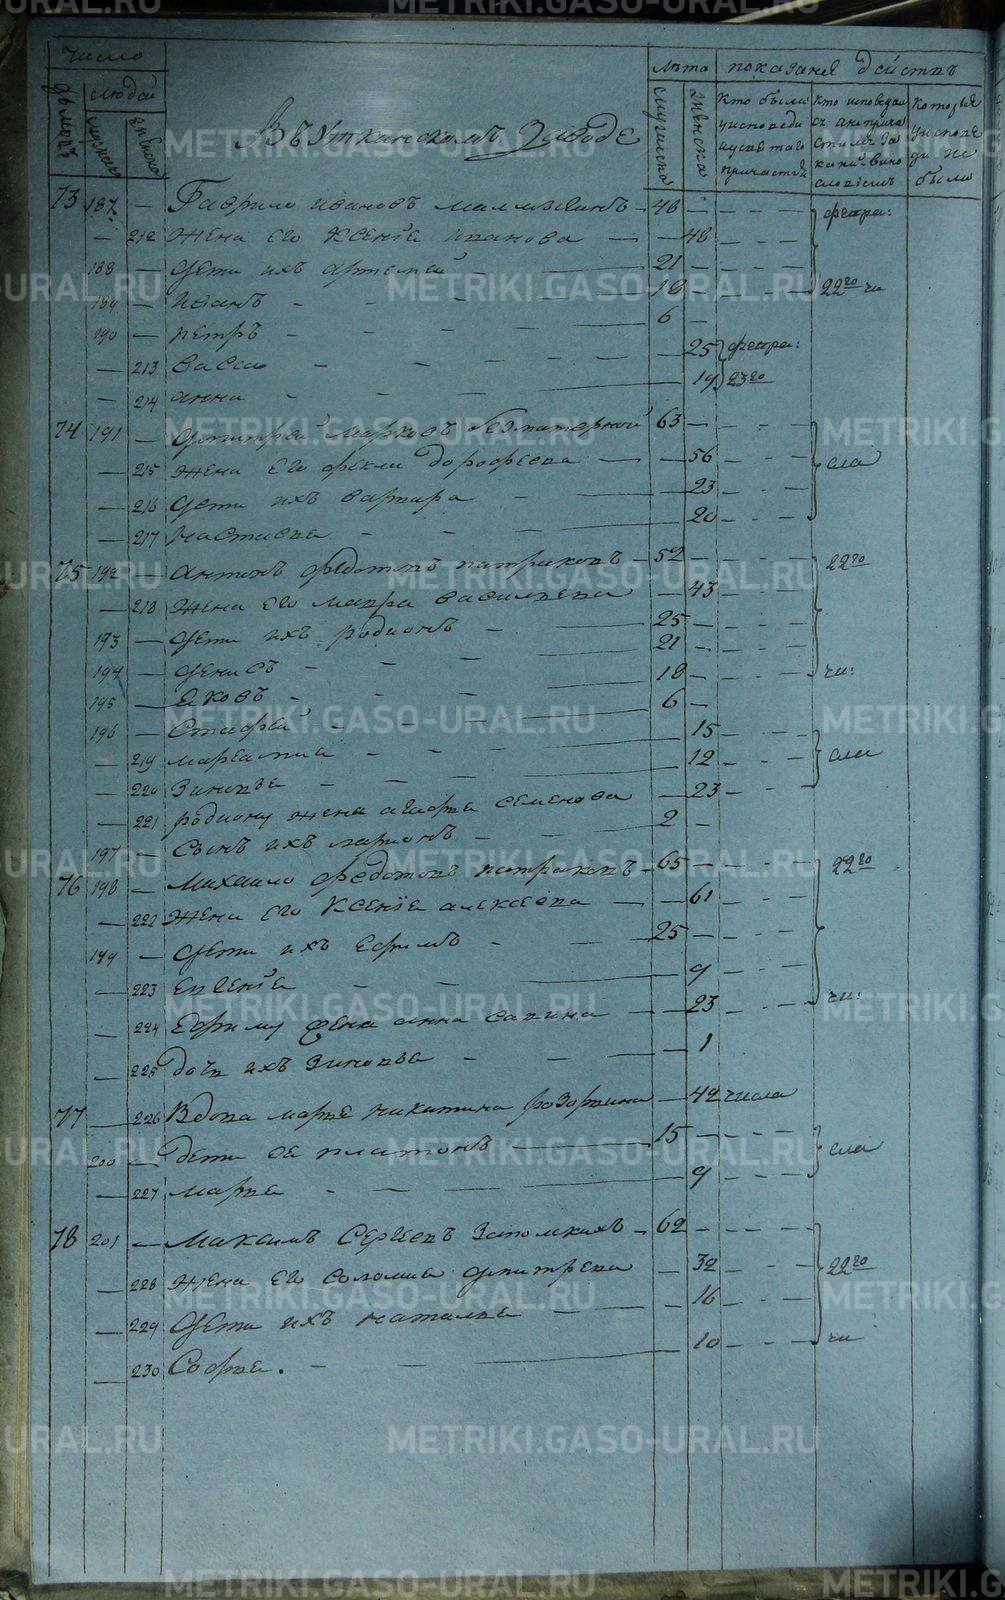 число
домовъ
людей
мужеска
женска
Въ Уткинскомъ Заводе
лѣта
мужеска
женска
показанiя действъ
Кто были у исповеди и у святаго причастiя
Кто исповедал
которые у исповеди не были
73 187 — Гаврило Ивановъ — 48 — феврa:
— 212 жена его Ксенiя Иванова — 48
188 — дети ихъ Артемей — 21
189 — Иванъ — 18 — 22го чи
190 — Петръ — 6
— 213 Васса — 25 февра:
— 214 Анна — 19 23го
74 191 — Дмитрей Марковъ — 63
— 215 жена его Фекла Дорофеева — 56 сла
— 216 дети ихъ Варвара — 23
— 217 Настасья — 20
75 192 — Антонъ Федотовъ Патраковъ — 52 — 22го
— 218 жена его Мавра Васильева — 43
193 — дети ихъ Родионъ — 25
194 — Денисъ — 21
195 — Яковъ — 18 чи:
196 — Стафей — 6
— 219 Марфа — 15
— 220 Зиновья — 12 сла
— 221 Родиону жена Агафья Семенова — 23
197 — сынъ ихъ Ларионъ — 2
76 198 — Михайло Федотовъ Патраковъ — 65 — 22го
— 222 жена его Ксенiя Алексеева — 61
199 — дети ихъ Ефимъ — 25
— 223 Евгенiя — 9 чи:
— 224 Ефиму жена Анна Савина — 23
— 225 дочь ихъ Зиновья — 1
77 — 226 Вдова Марья Никитина — 42 числа
200 — дети ее Платонъ — 15 сла
— 227 Марья — 9
78 201 — Максимъ Сергеевъ — 62
— 228 жена его Соломия Дмитрева — 32 22го
— 229 дети ихъ Наталья — 16
— 230 Софья. — 10 чи
METRIKI.GASO-URAL.RU